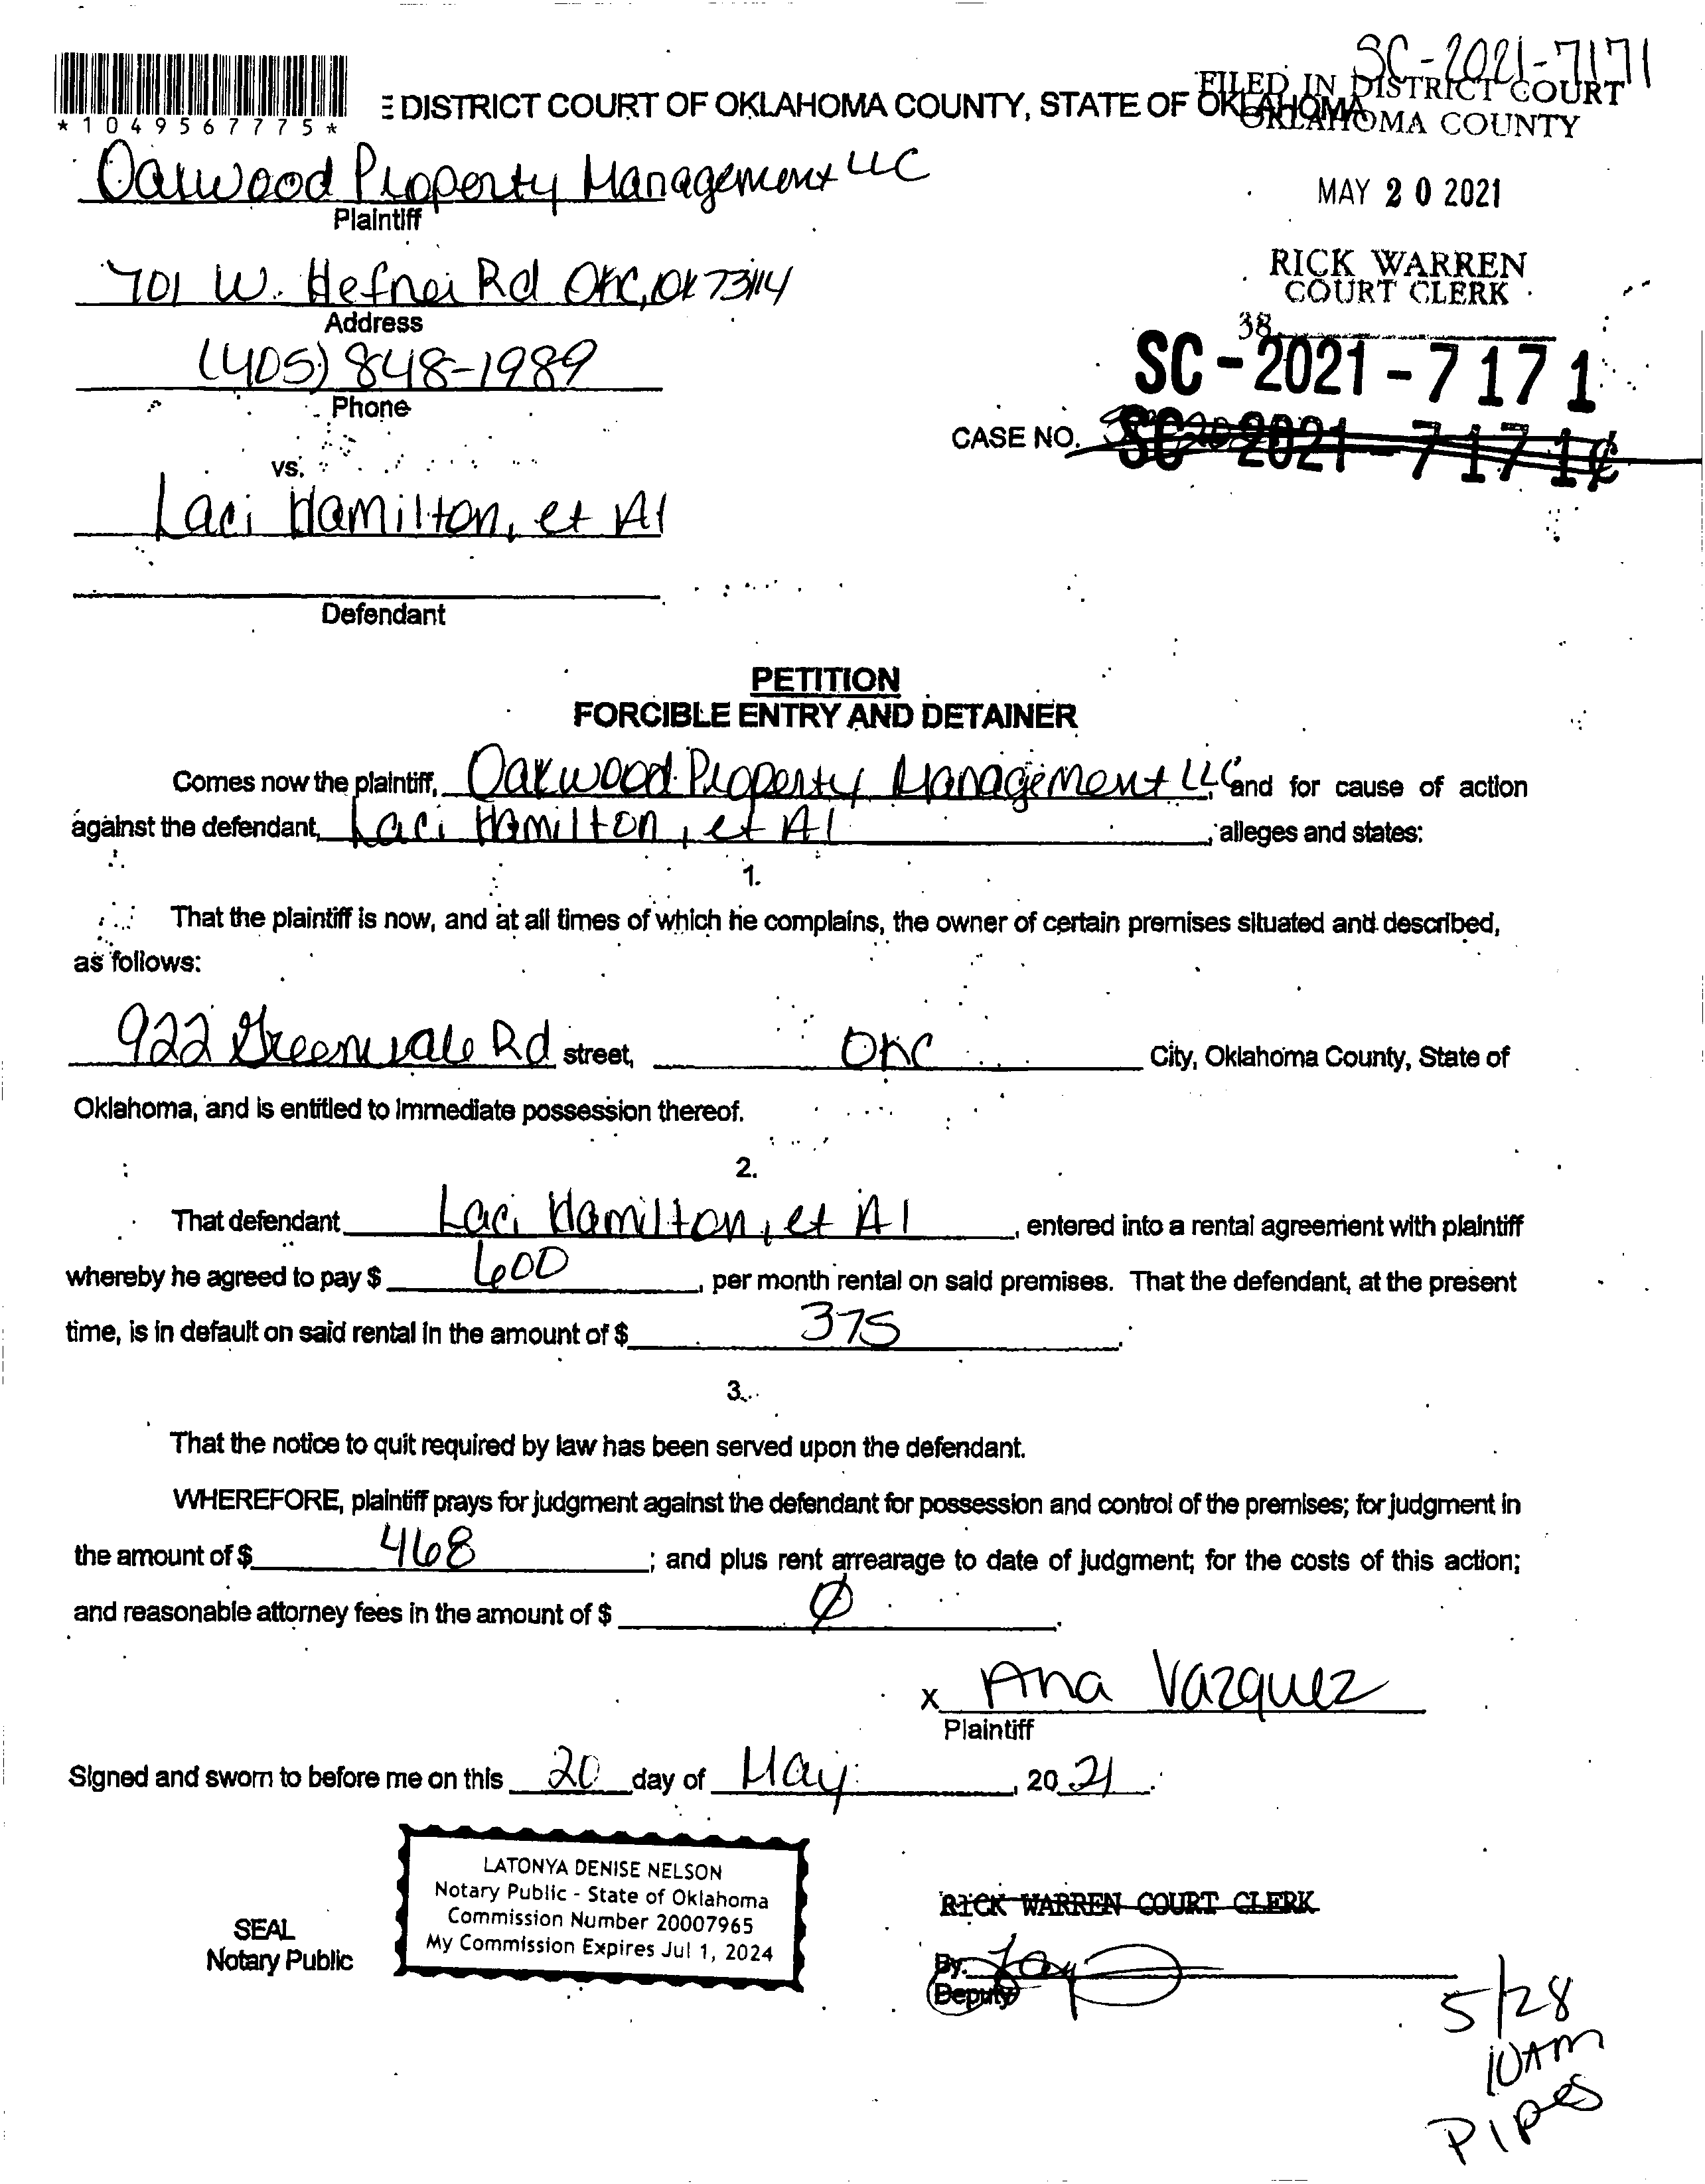 SC-2021-7171
FILED IN DISTRICT COURT
OKLAHOMA COUNTY
*1049567775*
E DISTRICT COURT OF OKLAHOMA COUNTY, STATE OF OKLAHOMA
Oakwood Property Management LLC
Plaintiff
MAY 20 2021
701 W. Hefner Rd OKC, OK 73114
Address
RICK WARREN
COURT CLERK
38
(405) 848-1989
Phone
SC-2021-7171
CASE NO. SC 2021-7171
vs.
Laci Hamilton, et Al
Defendant
PETITION
FORCIBLE ENTRY AND DETAINER
Comes now the plaintiff, Oakwood Property Management LLC, and for cause of action
against the defendant, Laci Hamilton, et Al, alleges and states:
1.
That the plaintiff is now, and at all times of which he complains, the owner of certain premises situated and described,
as follows:
922 Greenvale Rd street, OKC City, Oklahoma County, State of
Oklahoma, and is entitled to immediate possession thereof.
2.
That defendant Laci Hamilton, et Al, entered into a rental agreement with plaintiff
whereby he agreed to pay $ 600, per month rental on said premises. That the defendant, at the present
time, is in default on said rental in the amount of $ 375.
3.
That the notice to quit required by law has been served upon the defendant.
WHEREFORE, plaintiff prays for judgment against the defendant for possession and control of the premises; for judgment in
the amount of $ 468; and plus rent arrearage to date of judgment; for the costs of this action;
and reasonable attorney fees in the amount of $ Ø.
x Ana Vazquez
Plaintiff
Signed and sworn to before me on this 20 day of May, 2021.
LATONYA DENISE NELSON
Notary Public - State of Oklahoma
Commission Number 20007965
My Commission Expires Jul 1, 2024
SEAL
Notary Public
RICK WARREN COURT CLERK
By:
Deputy
5/28
10AM
Pipes